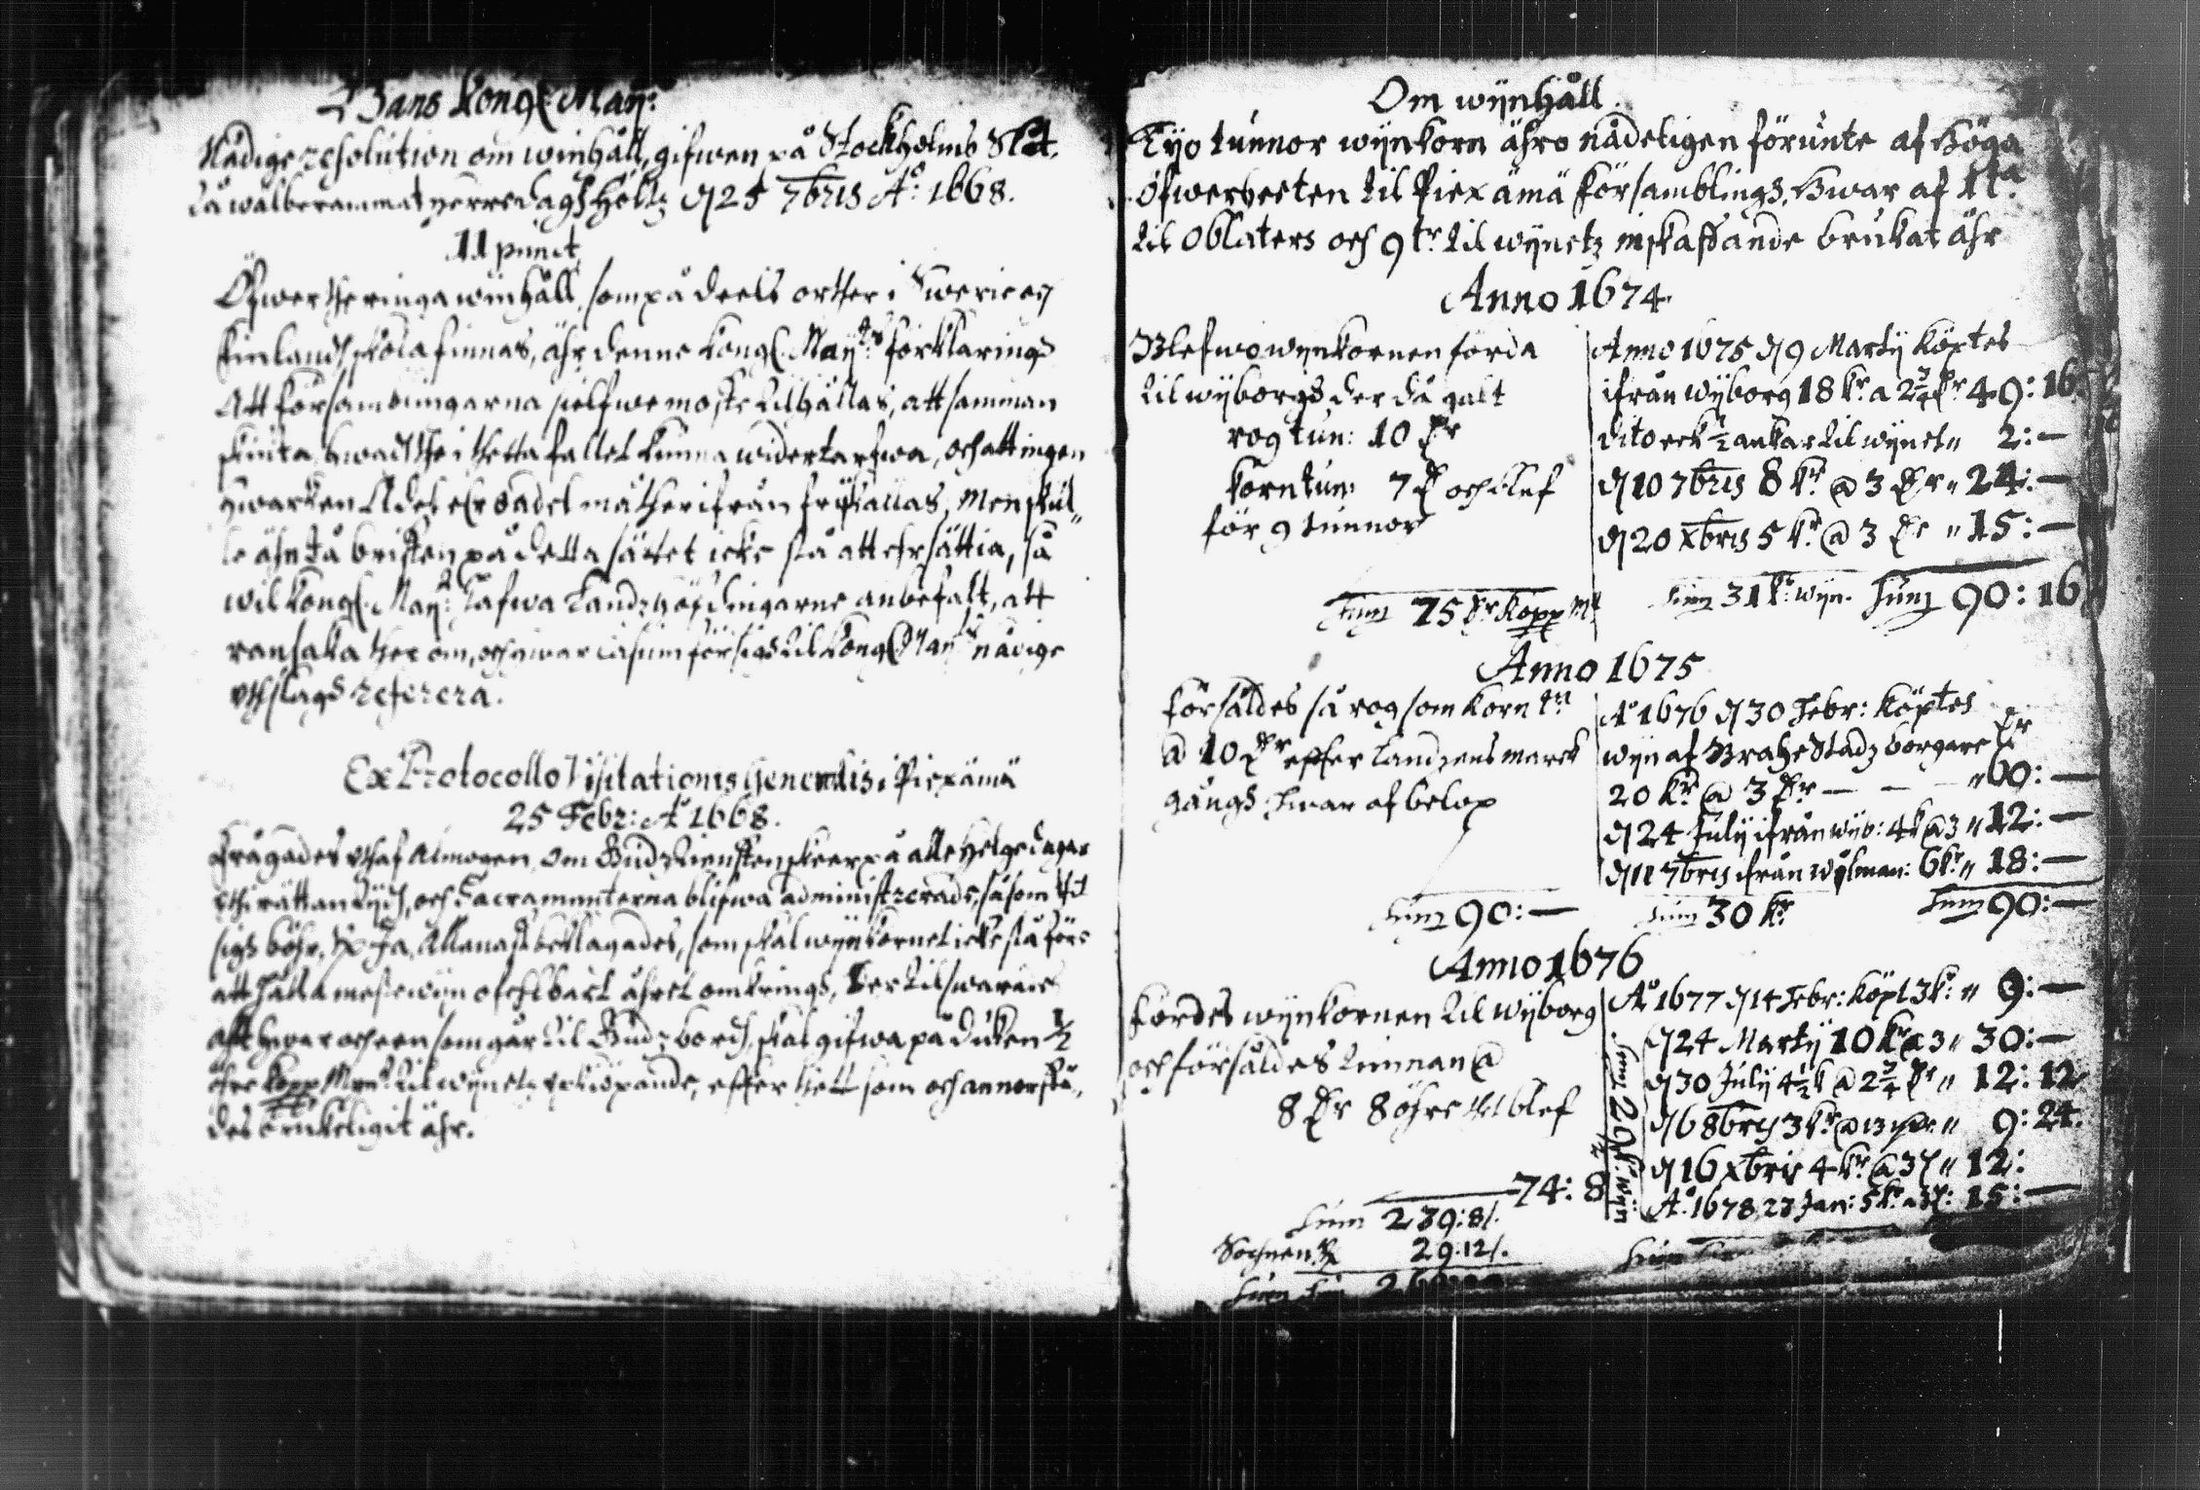 Hans Kongl: May:
Nådige resolution om winhåll, gifwen på Stockholms Slot,
då wälberammat herredagh höltz d 25 7bris Aº: 1668.
11 punct
Öfwer the ringa winhåll, som på deels orther i Swerie och
Finlandh skola finnas, ähr denne Kongl: May:tz förklaring
Att församblingarna sielfwe moste tilhållas, att samman
skiuta hwadh the i thetta fallet kunna widertarfwa, och att ingen
hwarken Adel elr oadel må ther ifrån frijkallas, Men skul„
le ähn då bristen på detta sättet icke stå att ehrsättia, så
wil Kongl: May:t hafwa Landzhöfdingarne anbefalt, att
ransaka ther om, och hwar casum för sigh til Kongl: May:tz nådige
vthslagh referera.
Ex Protocollo Visitationis Generalis i Piexämä
25 Febr: Aº 1668.
Frågades vthaf Almogen, Om Gudz tiensten skeer på alle helgedagar
i thi rättan tijdh, och Sacramenterna blifwa administrerade, såsom thet
sigh böhr, Rx Ja, Allenast beklagades, som skal wijnkornet icke stå före
att hålla messewijn ofehlbart åhret omkringh, Ther til swarades
att hwar och een som går til Gudz bordh, skal gifwa på duken ½
öhre kopp Mynt til wijnetz vpkiöpande, effter thett som och annorstä„
des brukeligit ähr.
Om wijnhåll.
Tijo tunnor wijnkorn ähro nådeligen förunte af Höga
Öfwerheeten til Piexämä församblingh, Hwar af 1 t:a
til Oblaters och 9 tr til wijnetz inskaffande brukat ähr
Anno 1674.
Blefwo wijnkornen förda
til wijborgh der då galt
rog tun: 10 Dr
korn tun: 7 D och blef
för 9 tunnor
Sum 75 Dr Kopp Mt
Anno 1675 d 9 Martij köptes
ifrån Wijborg 18 kr a 2¾ Dr 49: 16
dito eek ½ ankar til wijnet „ 2: —
d 10 7bris 8 kr @ 3 Dr „ 24: —
d 20 Xbris 5 kr @ 3 Dr „ 15: —
Sum 31 kr wijn. Sum 90: 16
Anno 1675
försåldes så rog som korn tn
@ 10 Dr effter Landzens marck
gångh, hwar af belop
Sum 90: —
Aº 1676 d 30 Febr: köptes
wijn af Brahestadz borgare Dr
20 kr @ 3 Dr — — — „ 60: —
d 24 Julij ifrån wijb: 4 k @ 3 „ 12: —
d 11 7bris ifrån Wijlman: 6 kr „ 18: —
Sum 30 kr Sum 90: —
Anno 1676
fördes wijnkornen til Wijborg
och försåldes tunnan @
8 Dr 8 öhre thet blef
74: 8
Sum 239: 8/.
Sochnen 29.12/.
Sum Sum
Aº 1677 d 14 Febr: köpt 3 k: „ 9: —
d 24 Martij 10 kr a 3 „ 30: —
d 30 Julij 4½ k @ 2¾ Dr „ 12: 12
d 6 8bris 3 kr @ 13 „ 9: 24.
d 16 Xbris 4 kr @ 3 „ 12:
Aº: 1678, 23 Jan: 5 kr a 3: 15: —
Sum 29½ kr wijn
Sum